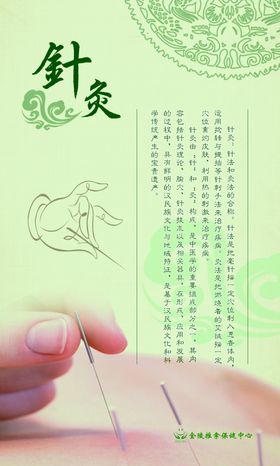 針灸
针灸：针法和灸法的合称。针法是把毫针按一定穴位刺入患者体内，
运用捻转与提插等针刺手法来治疗疾病。灸法是把燃烧着的艾绒按一定
穴位熏灼皮肤，利用热的刺激来治疗疾病。
针灸由“针”和“灸”构成，是中医学的重要组成部分之一，其内
容包括针灸理论、腧穴、针灸技术以及相关器具，在形成、应用和发展
的过程中，具有鲜明的汉民族文化与地域特征，是基于汉民族文化和科
学传统产生的宝贵遗产。
金陵推拿保健中心